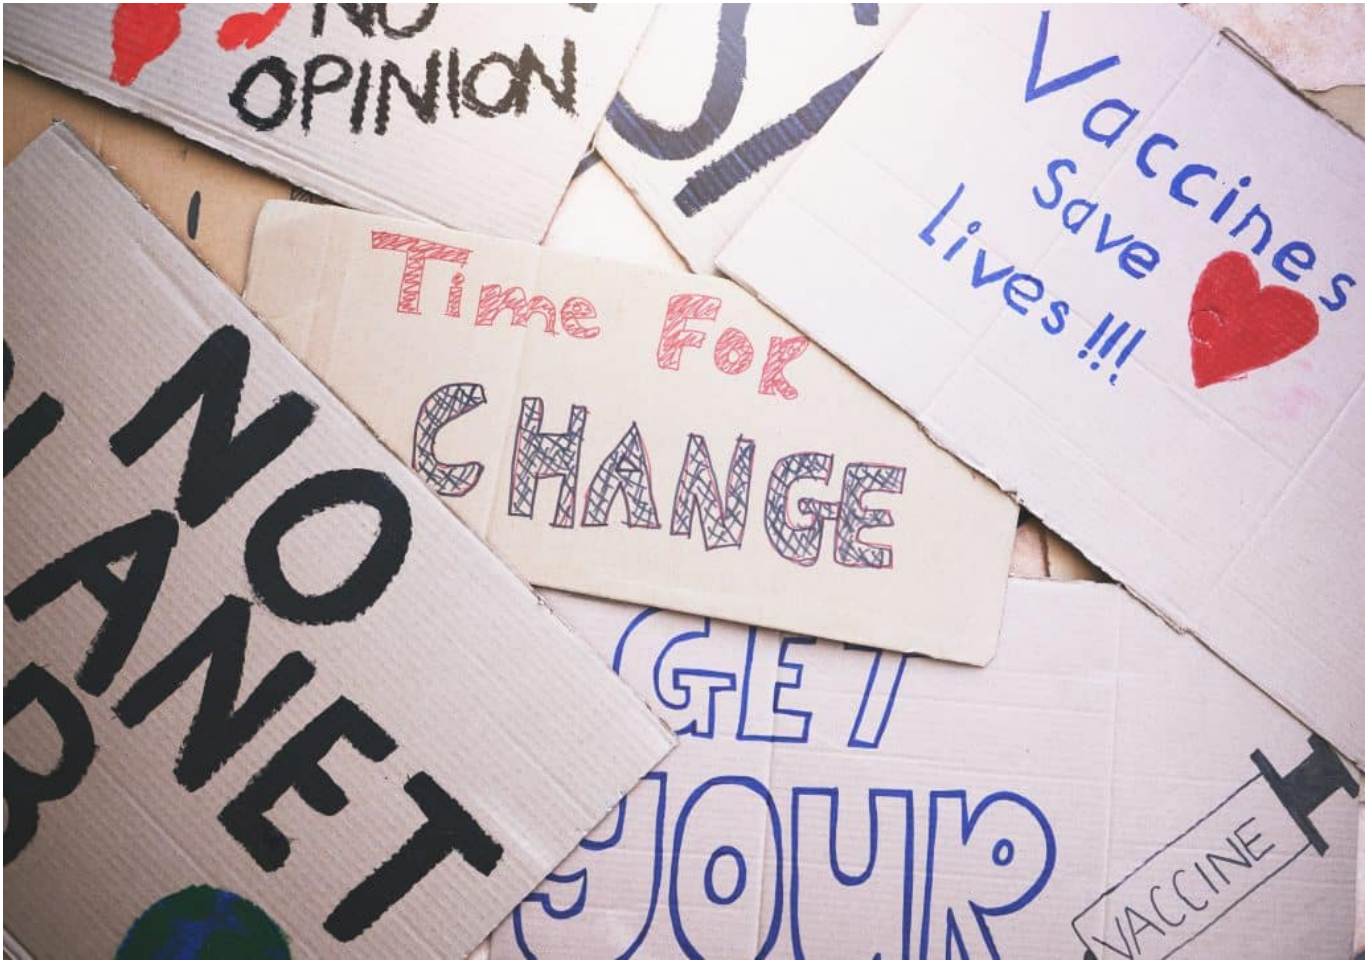 NO
OPINION
Vaccines
Save
Lives!!!
Time FoR
CHANGE
NO
ANET
B
GET
YOUR
VACCINE